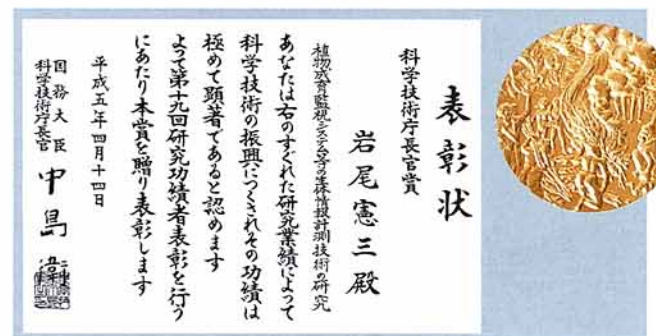 表彰状
科学技術庁長官賞
岩尾憲三殿
植物成育監視システム等の生体情報計測技術の研究
あなたは右のすぐれた研究業績によって
科学技術の振興につくされその功績は
極めて顕著であると認めます
よって第十九回研究功績者表彰を行う
にあたり本賞を贈り表彰します
平成五年四月十四日
国務大臣
科学技術庁長官
中島衛